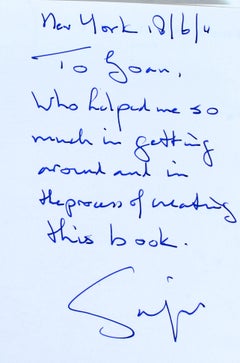 New York 18/6/11
To Joan,
Who helped me so
much in getting
around and in
the process of creating
this book.